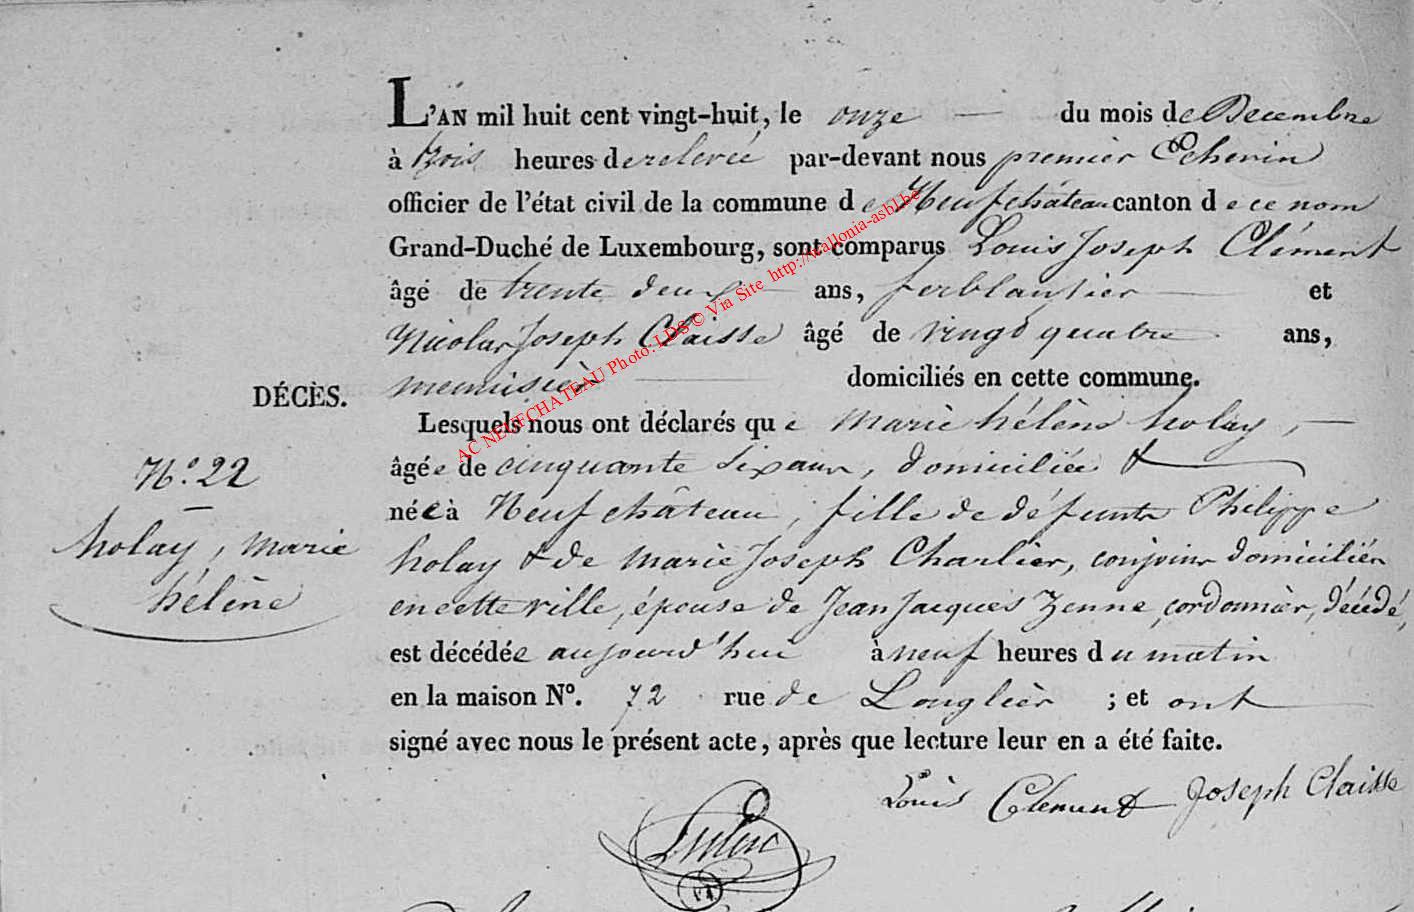 L'AN mil huit cent vingt-huit, le onze — du mois de Decembre
à trois heures de relevée par-devant nous premier Echevin
officier de l'état civil de la commune de Neufchâteau canton de ce nom
Grand-Duché de Luxembourg, sont comparus Louis Joseph Clément
âgé de trente deux — ans, ferblantier — et
Nicolas Joseph Claisse âgé de vingt quatre ans,
menuisier — domiciliés en cette commune.
DÉCÈS.
Lesquels nous ont déclarés que marie hélène holay, —
âgée de cinquante six ans, domiciliée &
née à Neufchâteau, fille de défunts Philippe
holay & de marie Joseph Charlier, conjoins domiciliés
en cette ville, épouse de Jean Jacques Zenne, cordonnier, décédé,
est décédée aujourd'hui à neuf heures du matin
en la maison N°. 72 rue de Longlier ; et ont
signé avec nous le présent acte, après que lecture leur en a été faite.
N.° 22
holay, marie
hélène
Louis Clement Joseph Claisse
AC NEUFCHATEAU Photo. LDS © Via Site http://wallonia-asbl.be